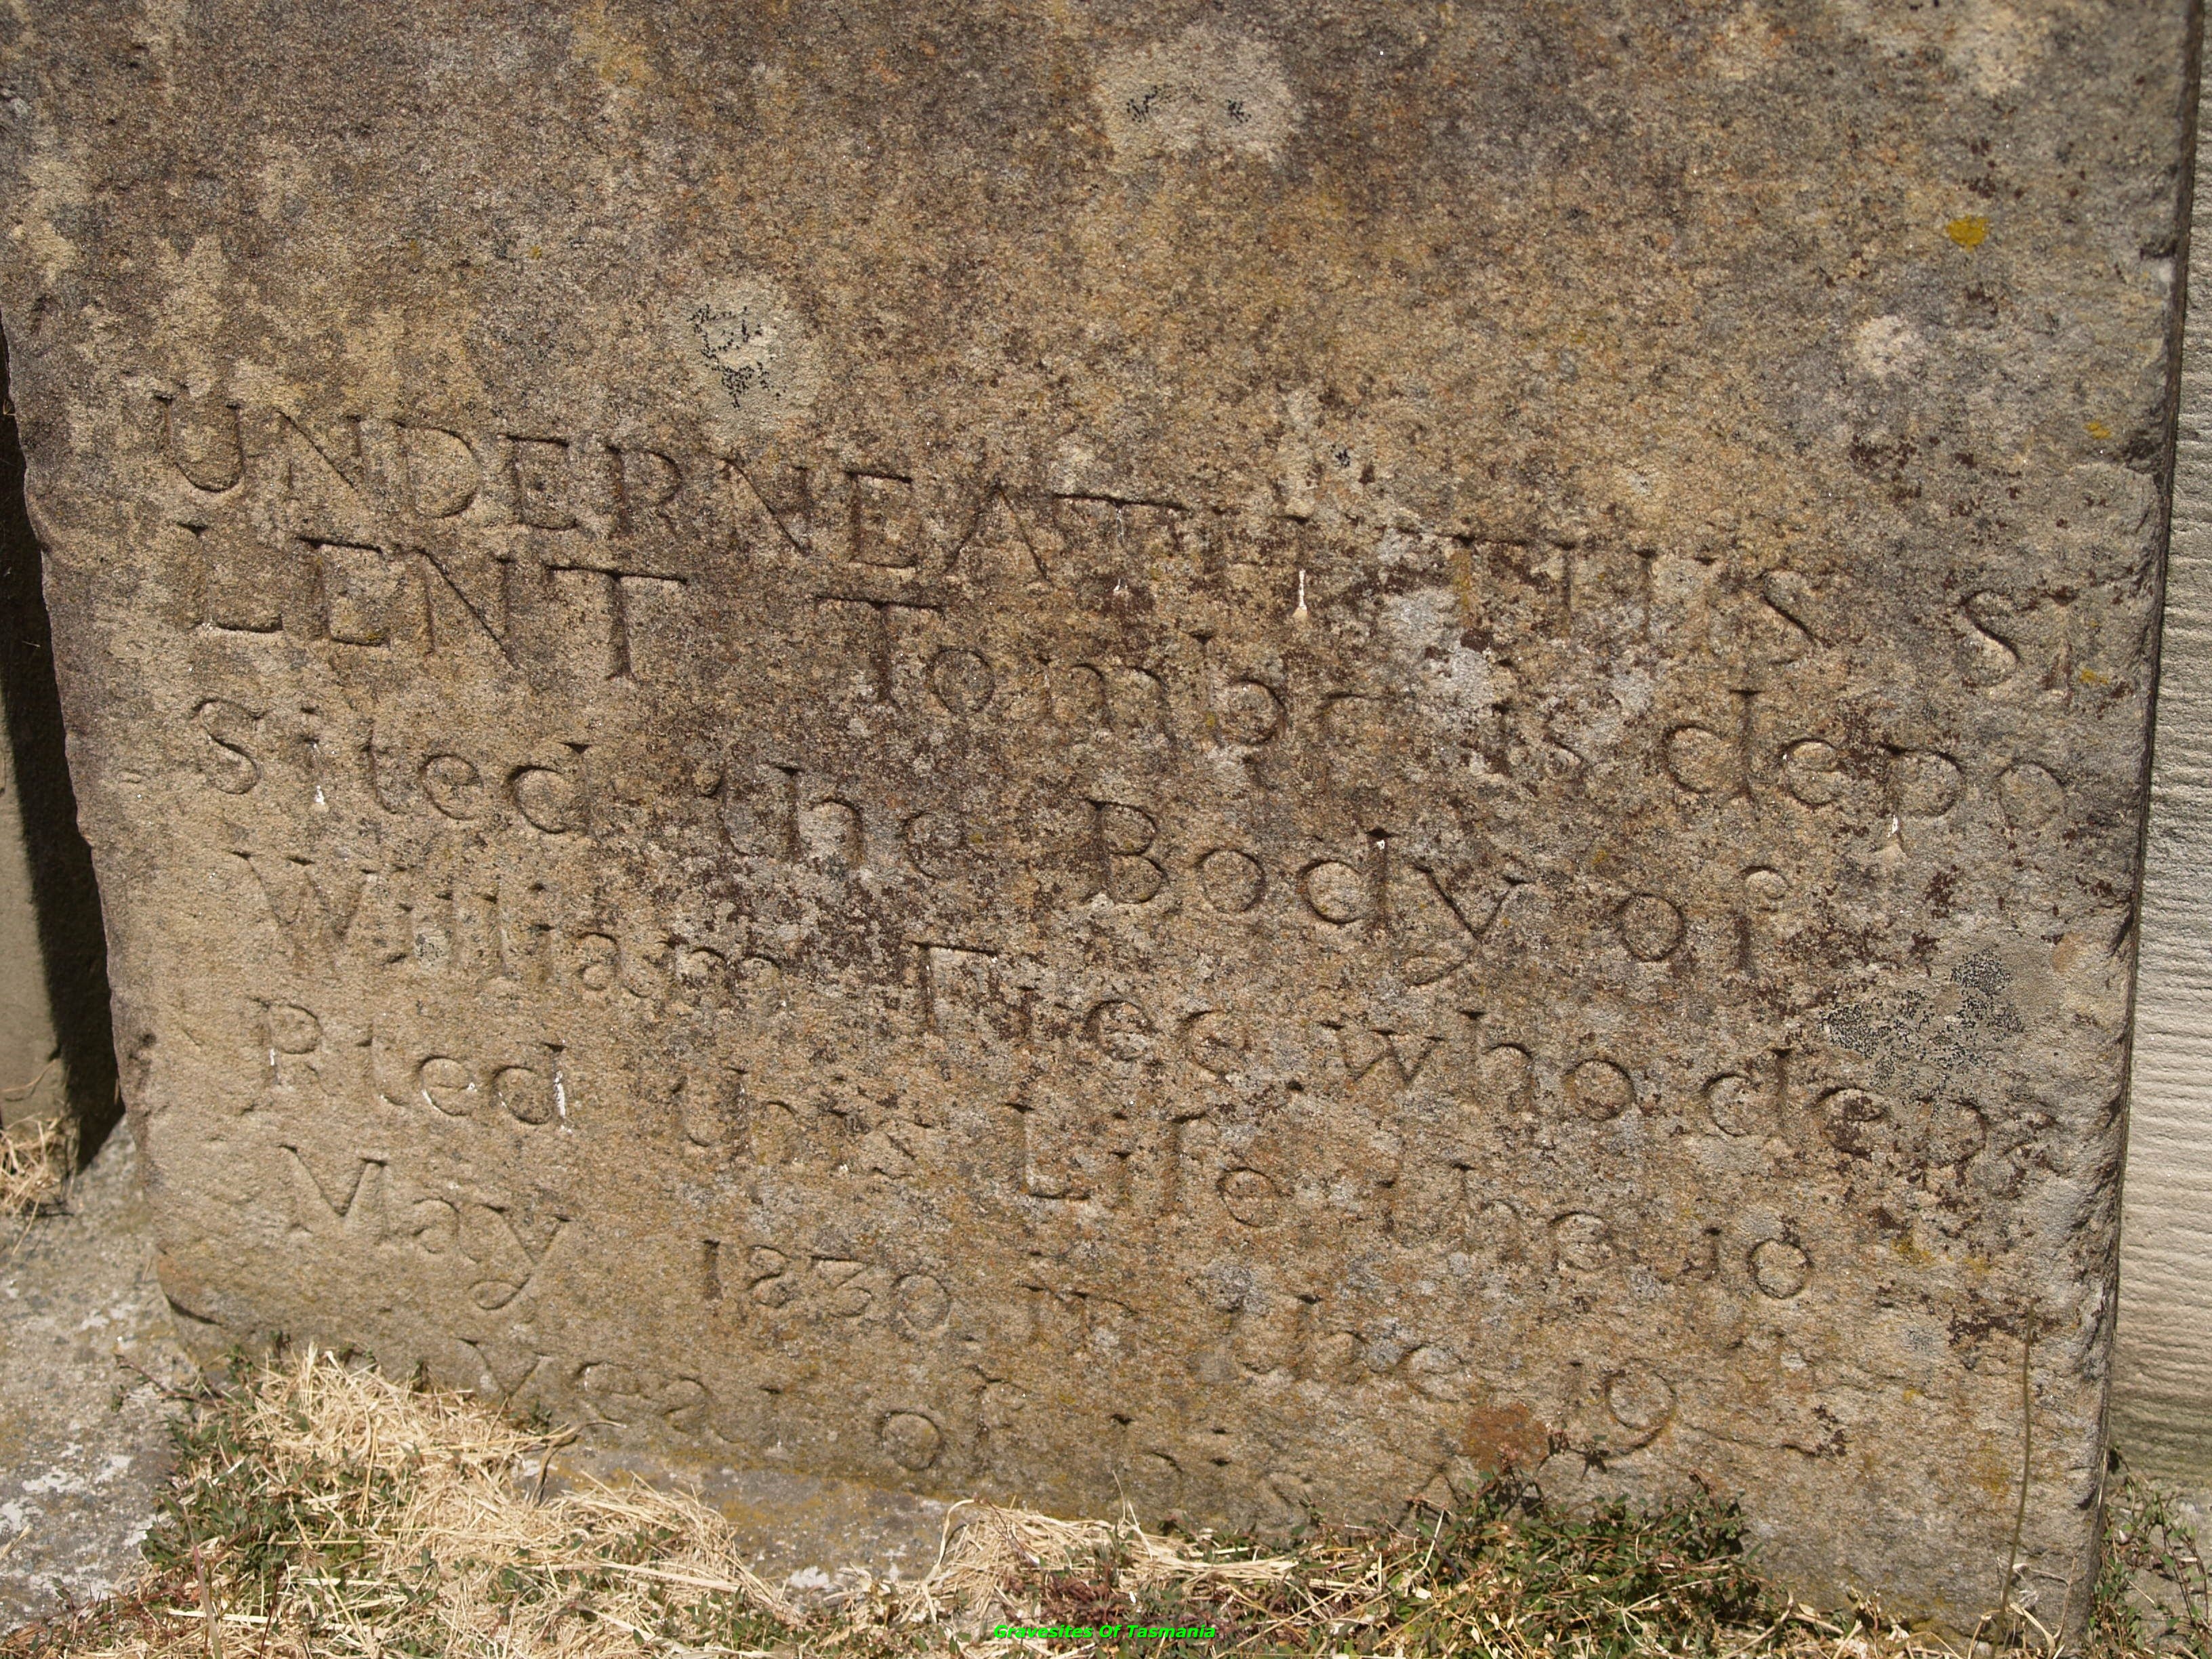 UNDERNEATH THIS SI
LENT Tombe is depo
Sited the Body of
William Free who depa
Rted this Life the 10
May 1830 in the 19
year of his
Gravesites Of Tasmania